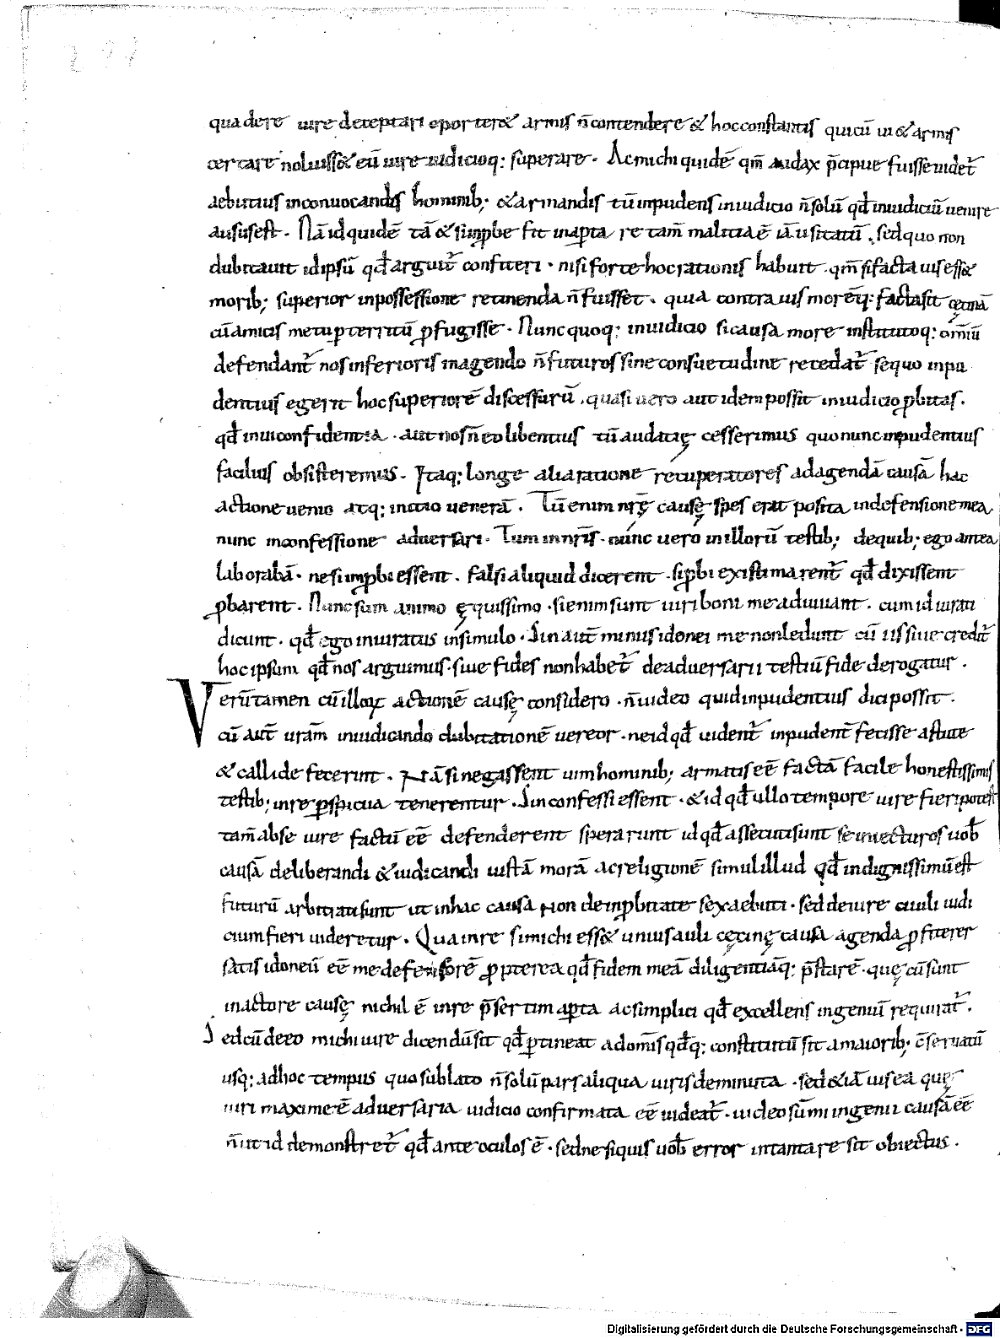 qua de re iure deceptari oporter& armis ñ contendere & hoc constantis qui cū ui & armis
certare noluiss& eū iure iudicioq; superare · Ac michi quidē qm̄ audax p̄cipue fuisse uidet̄
aebutius in conuocandis hominib; & armandis tū impudens in iudicio ñ solū qđ in iudiciū uenire
ausus est · Nā id quidē tā & si improbe fit in aperta re tam̄ malitia ē iā usitatū · sed quo non
dubitauit id ipsū qđ arguit̄ confiteri · nisi forte hoc rationis habuit · qm̄ si facta uis ess&
morib; superior in possessione retinenda ñ fuisset · quia contra uis moreq; facta sit cęcinā
cū amicis metu perterritū profugisse · Nunc quoq; in iudicio si causa more institutoq; omniū
defendant̄ nos inferioris in agendo ñ futuros sine consuetudine recedat̄ se quo inpu
dentius egerit hoc superiorē discessurū · quasi uero aut idem possit in iudicio probitas ·
qđ in ui confidentia · aut nos ñ eo libentius tū audatię cesserimus quo nunc inpudentius
facilius obsisteremus · Itaq; longe alia ratione recuperatores ad agendā causā hac
actione uenio atq; initio ueneram̄ · Tū enim nr̄ę causę spes erat posita in defensione mea
nunc in confessione aduersari · Tum in nr̄is · nunc uero in illorū testib; de quib; ego antea
laborabā · ne si improbi essent · falsi aliquid dicerent · si probi existimarent̄ qđ dixissent
probarent · Nunc sum animo ęquissimo · si enim sunt uiri boni me adiuuant · cum id iurati
dicunt · qđ ego iniuratus insimulo · Sin aut̄ minus idonei me non ledunt cū iis siue credit̄
hoc ipsum qđ nos arguimus · siue fides non habet̄ de aduersarii testiū fide derogatur ·
Verūtamen cū illorum actionē causę considero · ñ uideo quid inpudentius dici possit ·
cū aut̄ uram̄ in iudicando dubitationē uereor · ne id qđ uident̄ inpudent̄ fecisse astute
& callide fecerint · Nā si negassent uim hominib; armatis eē factā facile honestissimis
testib; in re perspicua tenerentur · Sin confessi essent · & id qđ ullo tempore iure fieri potest
tam̄ ab se iure factū eē defenderent sperarunt id qđ assecuti sunt se iniecturos uob̄
causā deliberandi & iudicandi iustā morā ac religionē simul illud qđ indignissimū est
futurū arbitrati sunt ut in hac causa non de improbitate sex aebuti · sed de iure ciuili iudi
cium fieri uideretur · Qua in re si michi ess& unius auli cęcinę causa agenda profiterer
satis idoneū eē me defensorē propterea qđ fidem meā diligentiāq; p̄starē · quę cū sunt
in actore causę nichil ē in re p̄sertim aperta ac simplici qđ excellens ingeniū requirat̄ ·
Sed cū de eo michi iure dicendū sit qđ pertineat ad om̄is qđq; constitutū sit a maiorib; cōseruatū
usq; ad hoc tempus quo sublato ñ solū pars aliqua iuris deminuta · sed & iā uis ea quę
iuri maxime ē aduersaria iudicio confirmata eē uideat̄ · uideo sūmi ingenii causā eē
ñ ut id demonstret̄ qđ ante oculos ē · sed ne siquis uob̄ error in tanta re sit obiectus ·
Digitalisierung gefördert durch die Deutsche Forschungsgemeinschaft - DFG